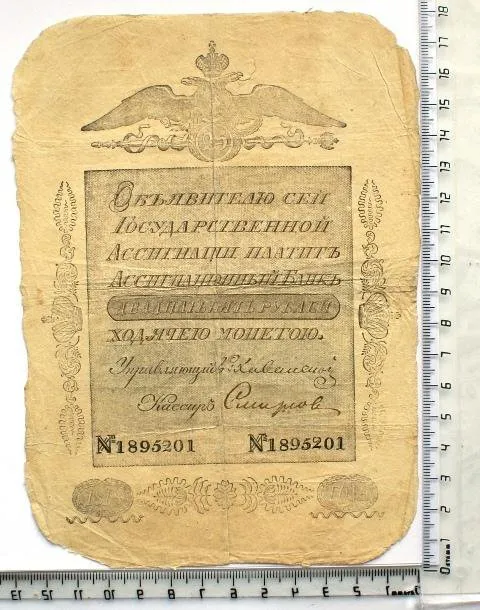 Объявителю сей
Государственной
Ассигнации платитъ
Ассигнаціонный Банкъ
двадцать пять рублей
ходячею монетою.
Управляющій
Кассиръ Смирнов
№1895201 №1895201
18 17 16 15 14 13 12 11 10 9 8 7 6 5 4 3 2 1 0
13 12 11 10 9 8 7 6 5 4 3 2 1